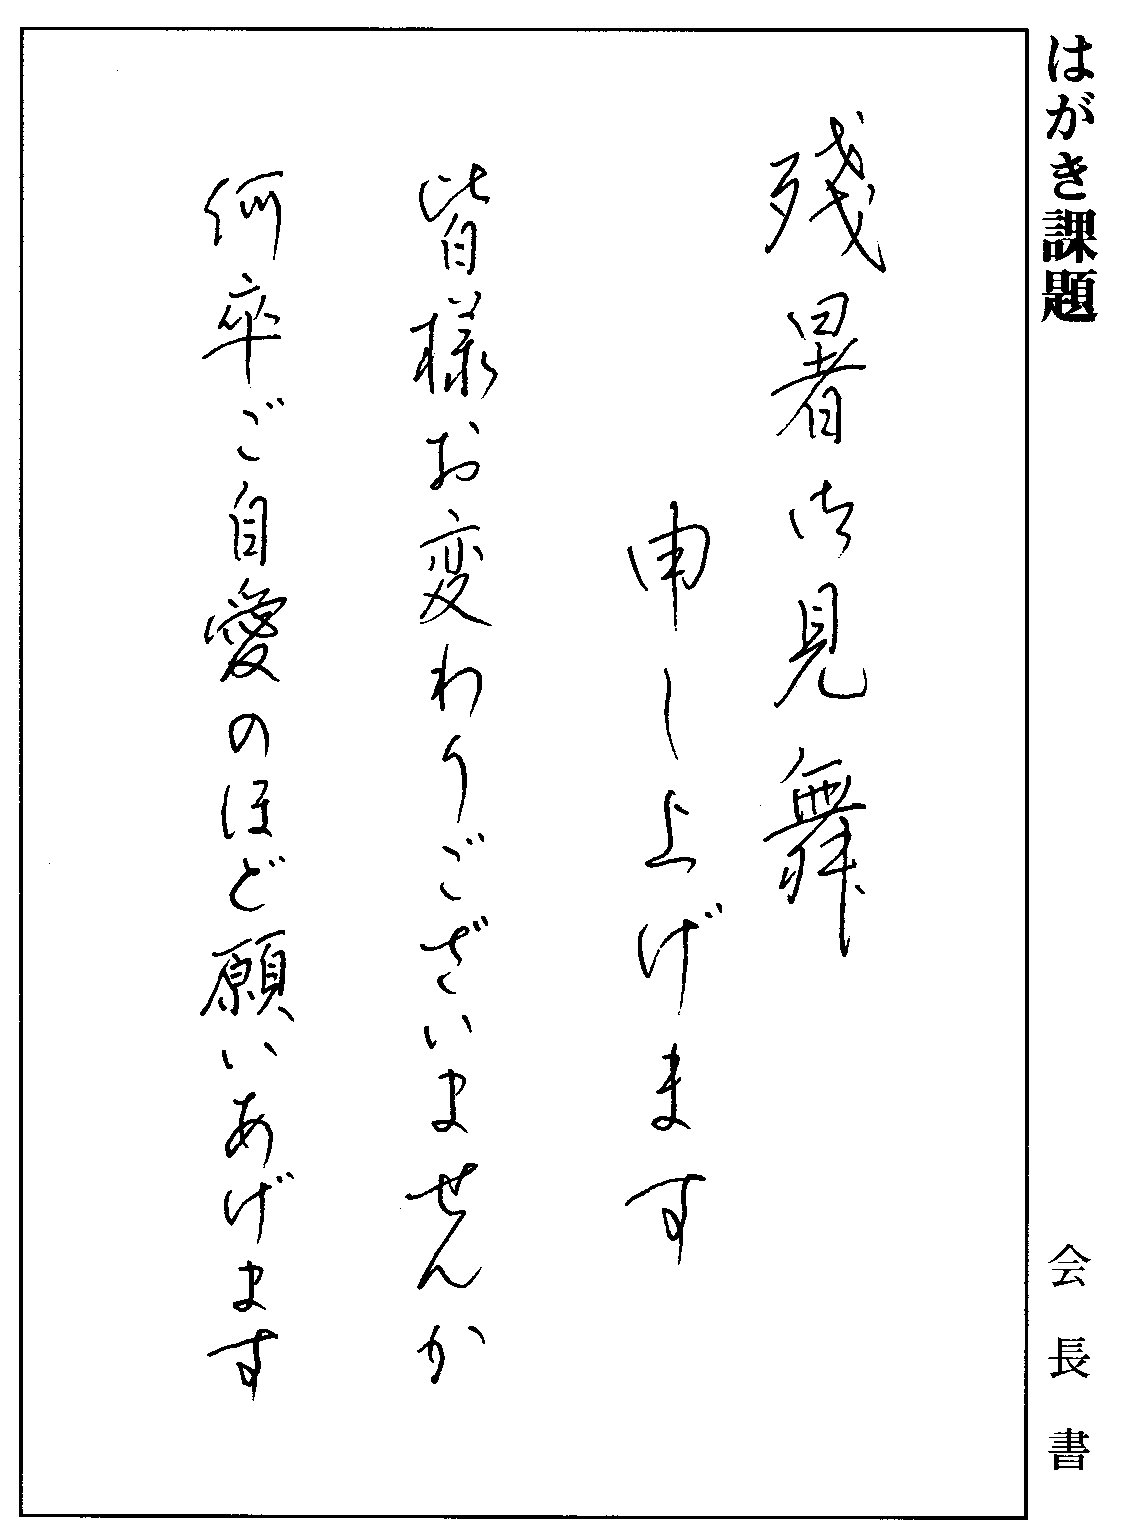 はがき課題
会長書
残暑御見舞
申し上げます
皆様お変わりございませんか
何卒ご自愛のほど願いあげます